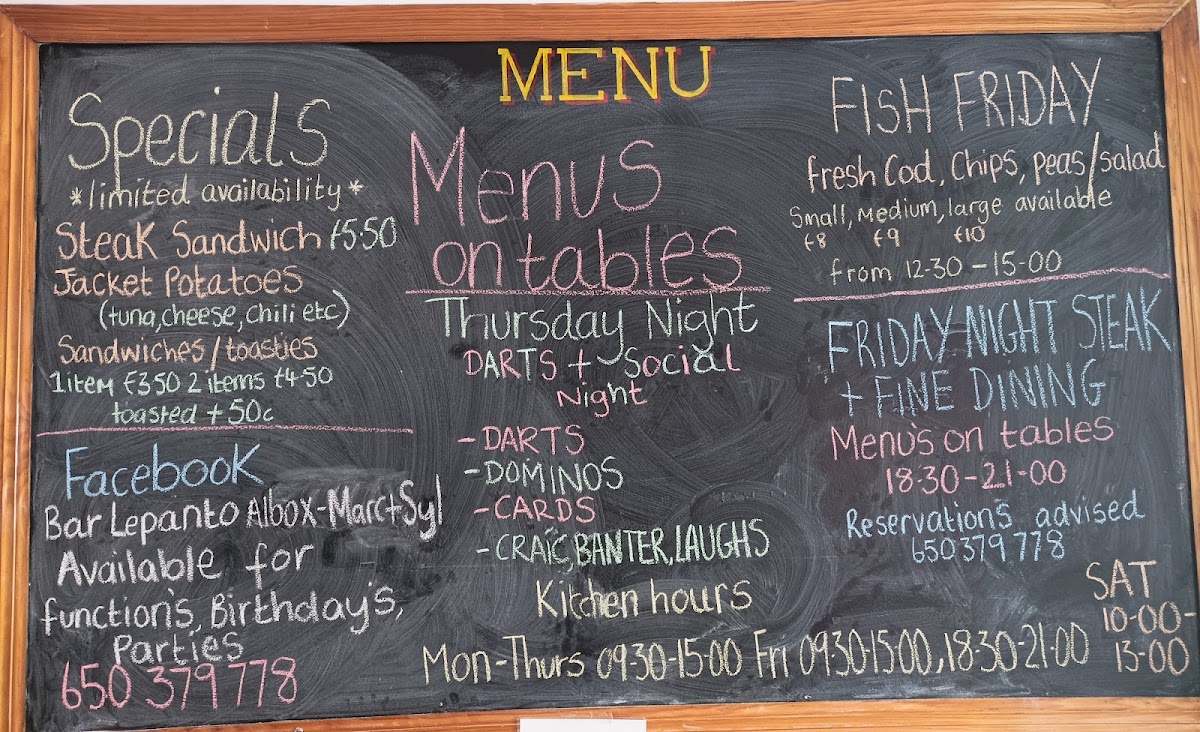 MENU
Specials
*limited availability*
Steak Sandwich £5.50
Jacket Potatoes
(tuna, cheese, chili etc)
Sandwiches/toasties
1 item £3.50 2 items £4.50
toasted + 50c
Facebook
Bar Lepanto Albox-Marc+Syl
Available for
function's, Birthday's,
Parties
650 379 778
Menus
on tables
Thursday Night
DARTS + Social
Night
- DARTS
- DOMINOS
- CARDS
- CRAIC, BANTER, LAUGHS
Kitchen hours
Mon-Thurs 09.30-15.00 Fri 09.30-15.00, 18.30-21.00
SAT
10-00-
13-00
FISH FRIDAY
fresh Cod, Chips, peas/salad
Small, Medium, large available
£8 £9 £10
from 12-30 - 15-00
FRIDAY NIGHT STEAK
+ FINE DINING
Menu's on tables
18.30-21.00
Reservations advised
650 379 778